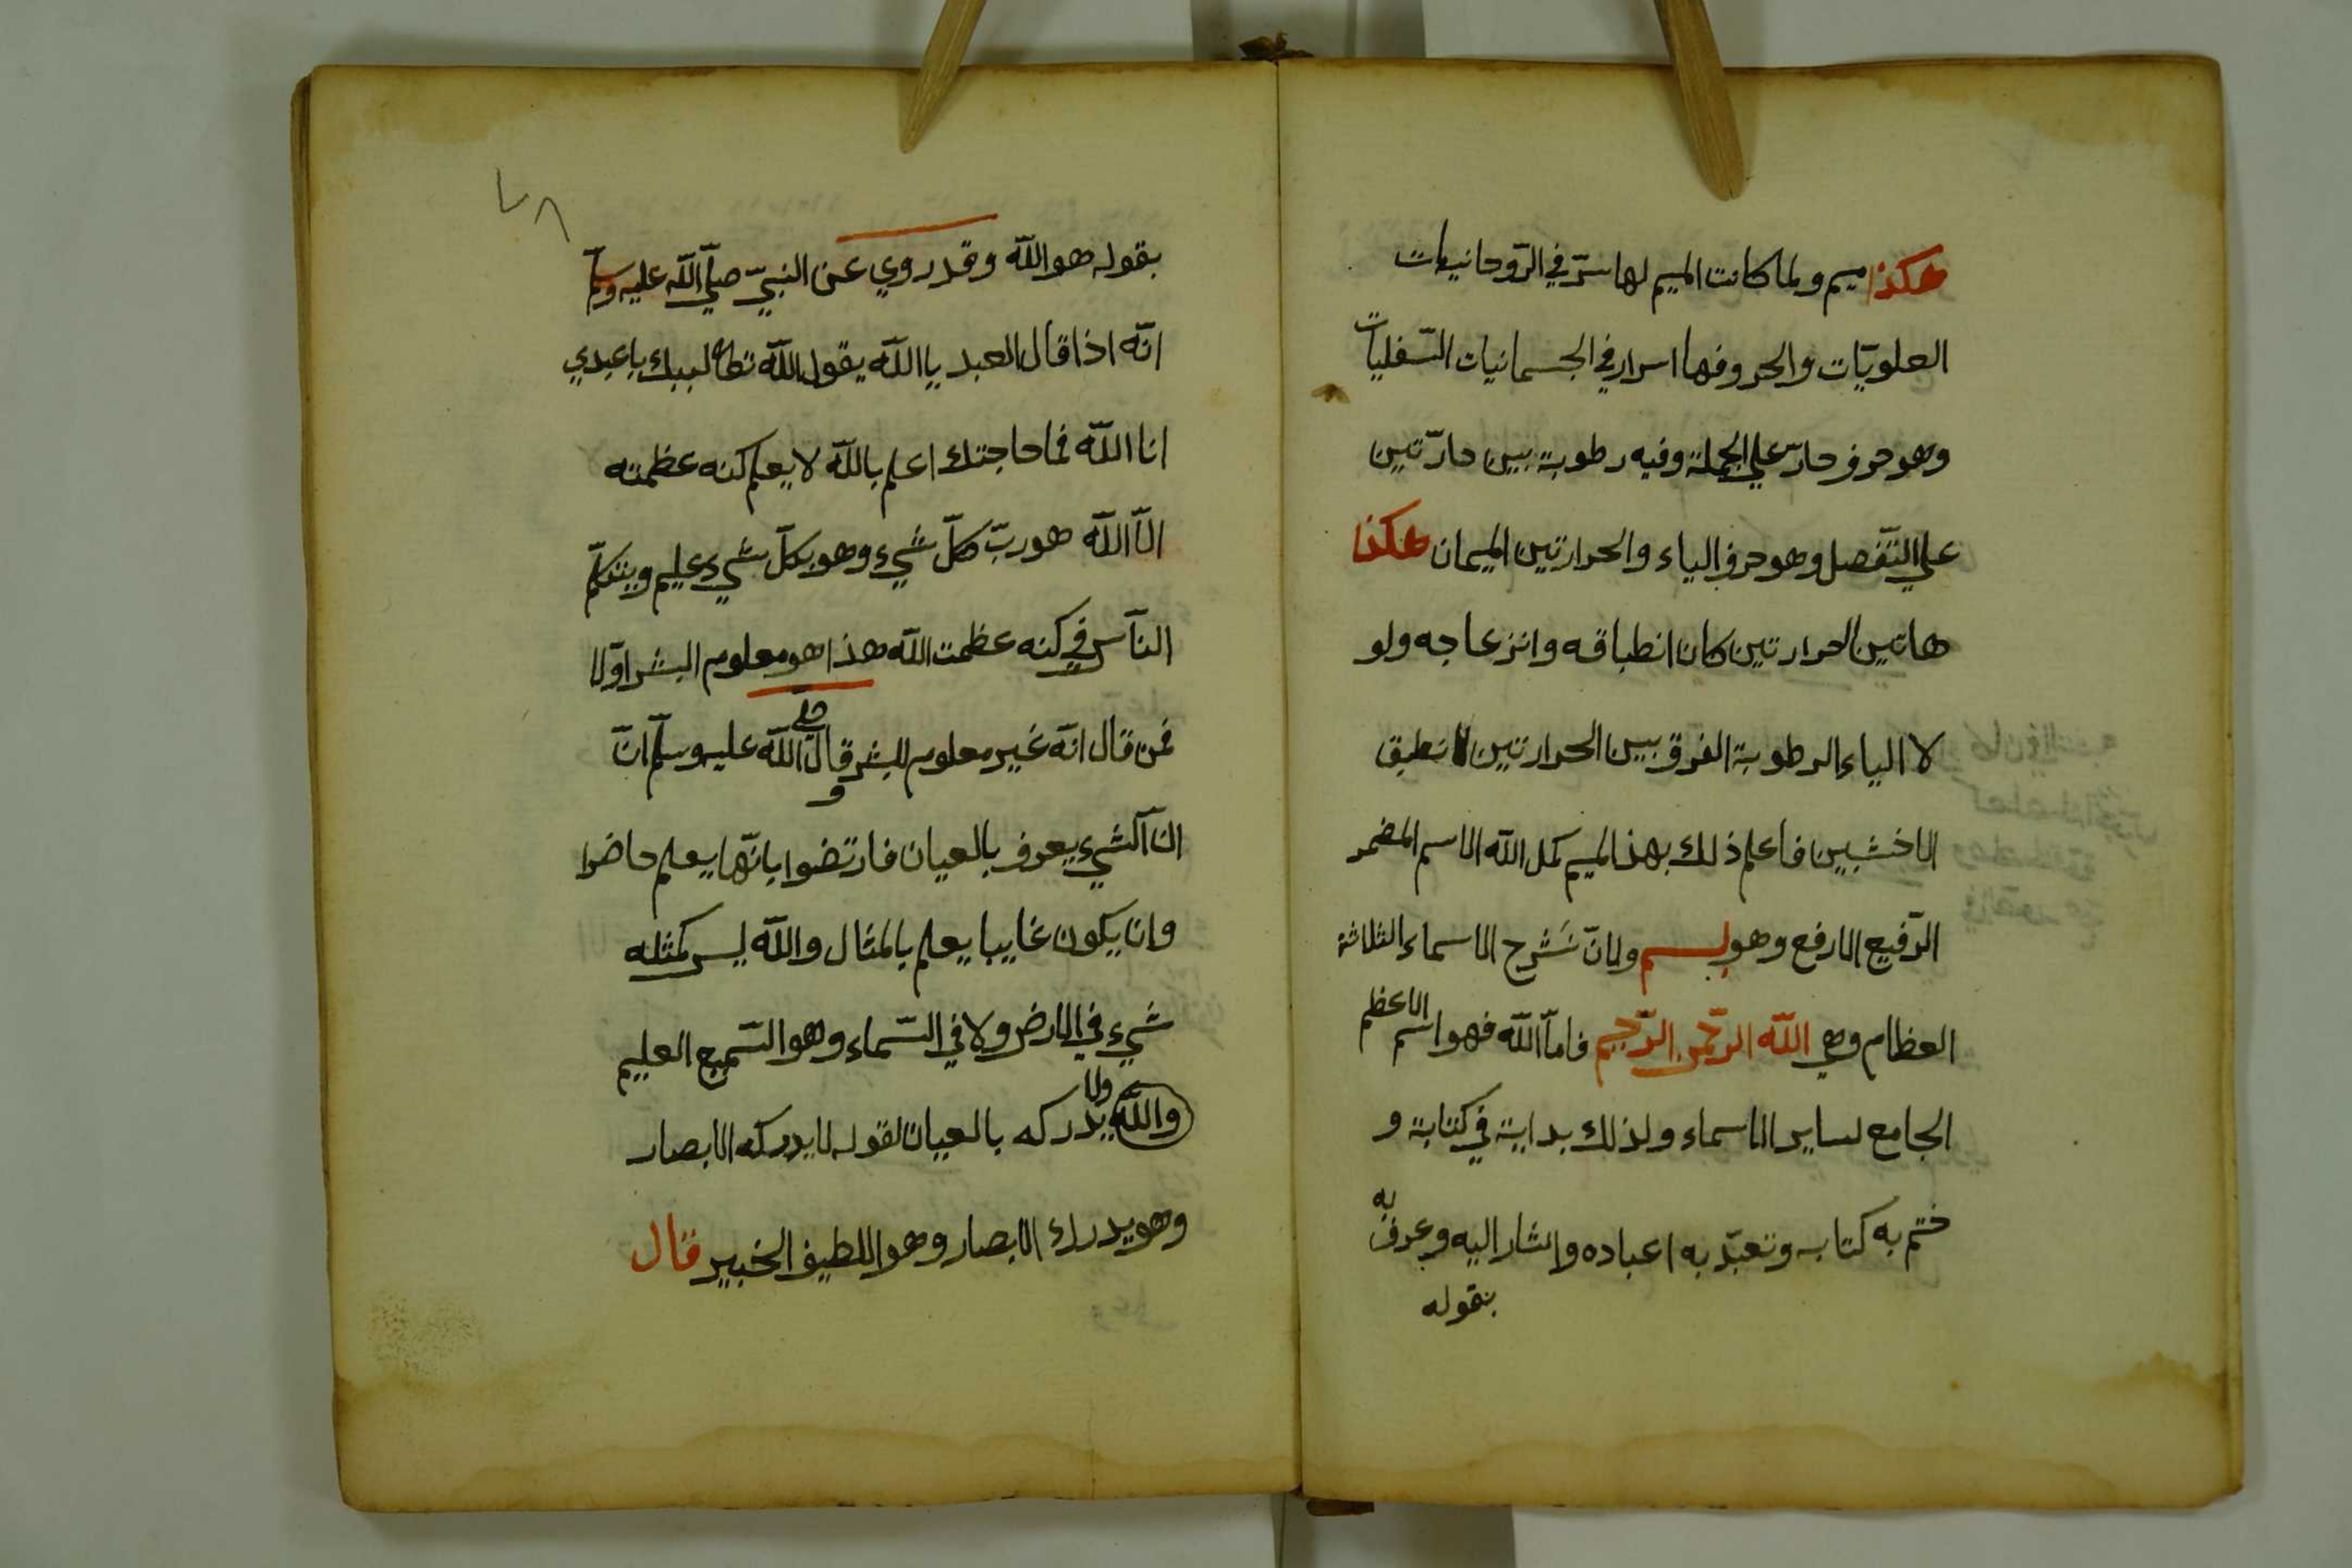 هكذا ميم ولما كانت الميم لها سرّ في الرّوحانيات
العلويّات والحروفها اسرار في الجسمانيات السّفليات
وهو حرف حارّ علي الجملة وفيه رطوبة بين حارّتين
علي التّفصل وهو حرف الياء والحرارتين الميمان هكذا
هاتين الحرارتين كان انطباقه وانزعاجه ولو
لا الياء الرطوبة الفرق بين الحرارتين لا نطبق
الاخشبين فاعلم ذلك بهذ الميم كمل اللّه الاسم المضمر
الرّفيع الارفع وهو بسم ولانّ نَشرح الاسماء الثلاثة
العظام وهي اللّه الرّحمن الرّحيم فامّا اللّه فهو اسم الاعظم
الجامع لساير الاسماء ولذلك بداية في كتابة و
ختم به كتابه وتعبّد به اعباده واشار اليه وعرفّ به
بقوله
٧٨
بقوله هو اللّه وقد روي عن النبيّ صلّي اللّه عليه وسلّم
انّه اذا قال العبد يا اللّه يقول اللّه تعالى لبيك يا عبدي
انا اللّه فما حاجتك اعلم باللّه لا يعلم كنه عظمته
الّا اللّه هو ربّ كلّ شيء وهو بكلّ شيء عليم ويتكلّم
النّاس في كنه عظمت اللّه هذا هو معلوم البشر اوّلا
فمن قال انّه غير معلوم للبشر وقال صلي اللّه عليه وسلّم انّ
الشيء يعرف بالعيان فارتضوا بانّها يعلم حاضرا
وان يكون غايبا يعلم بالمثال واللّه ليس كمثله
شيء في الارض ولا في السّماء وهو السّميع العليم
واللّه ولا يدركه بالعيان لقوله لا يدركه الابصار
وهو يدرك الابصار وهو اللطيف الخبير قال